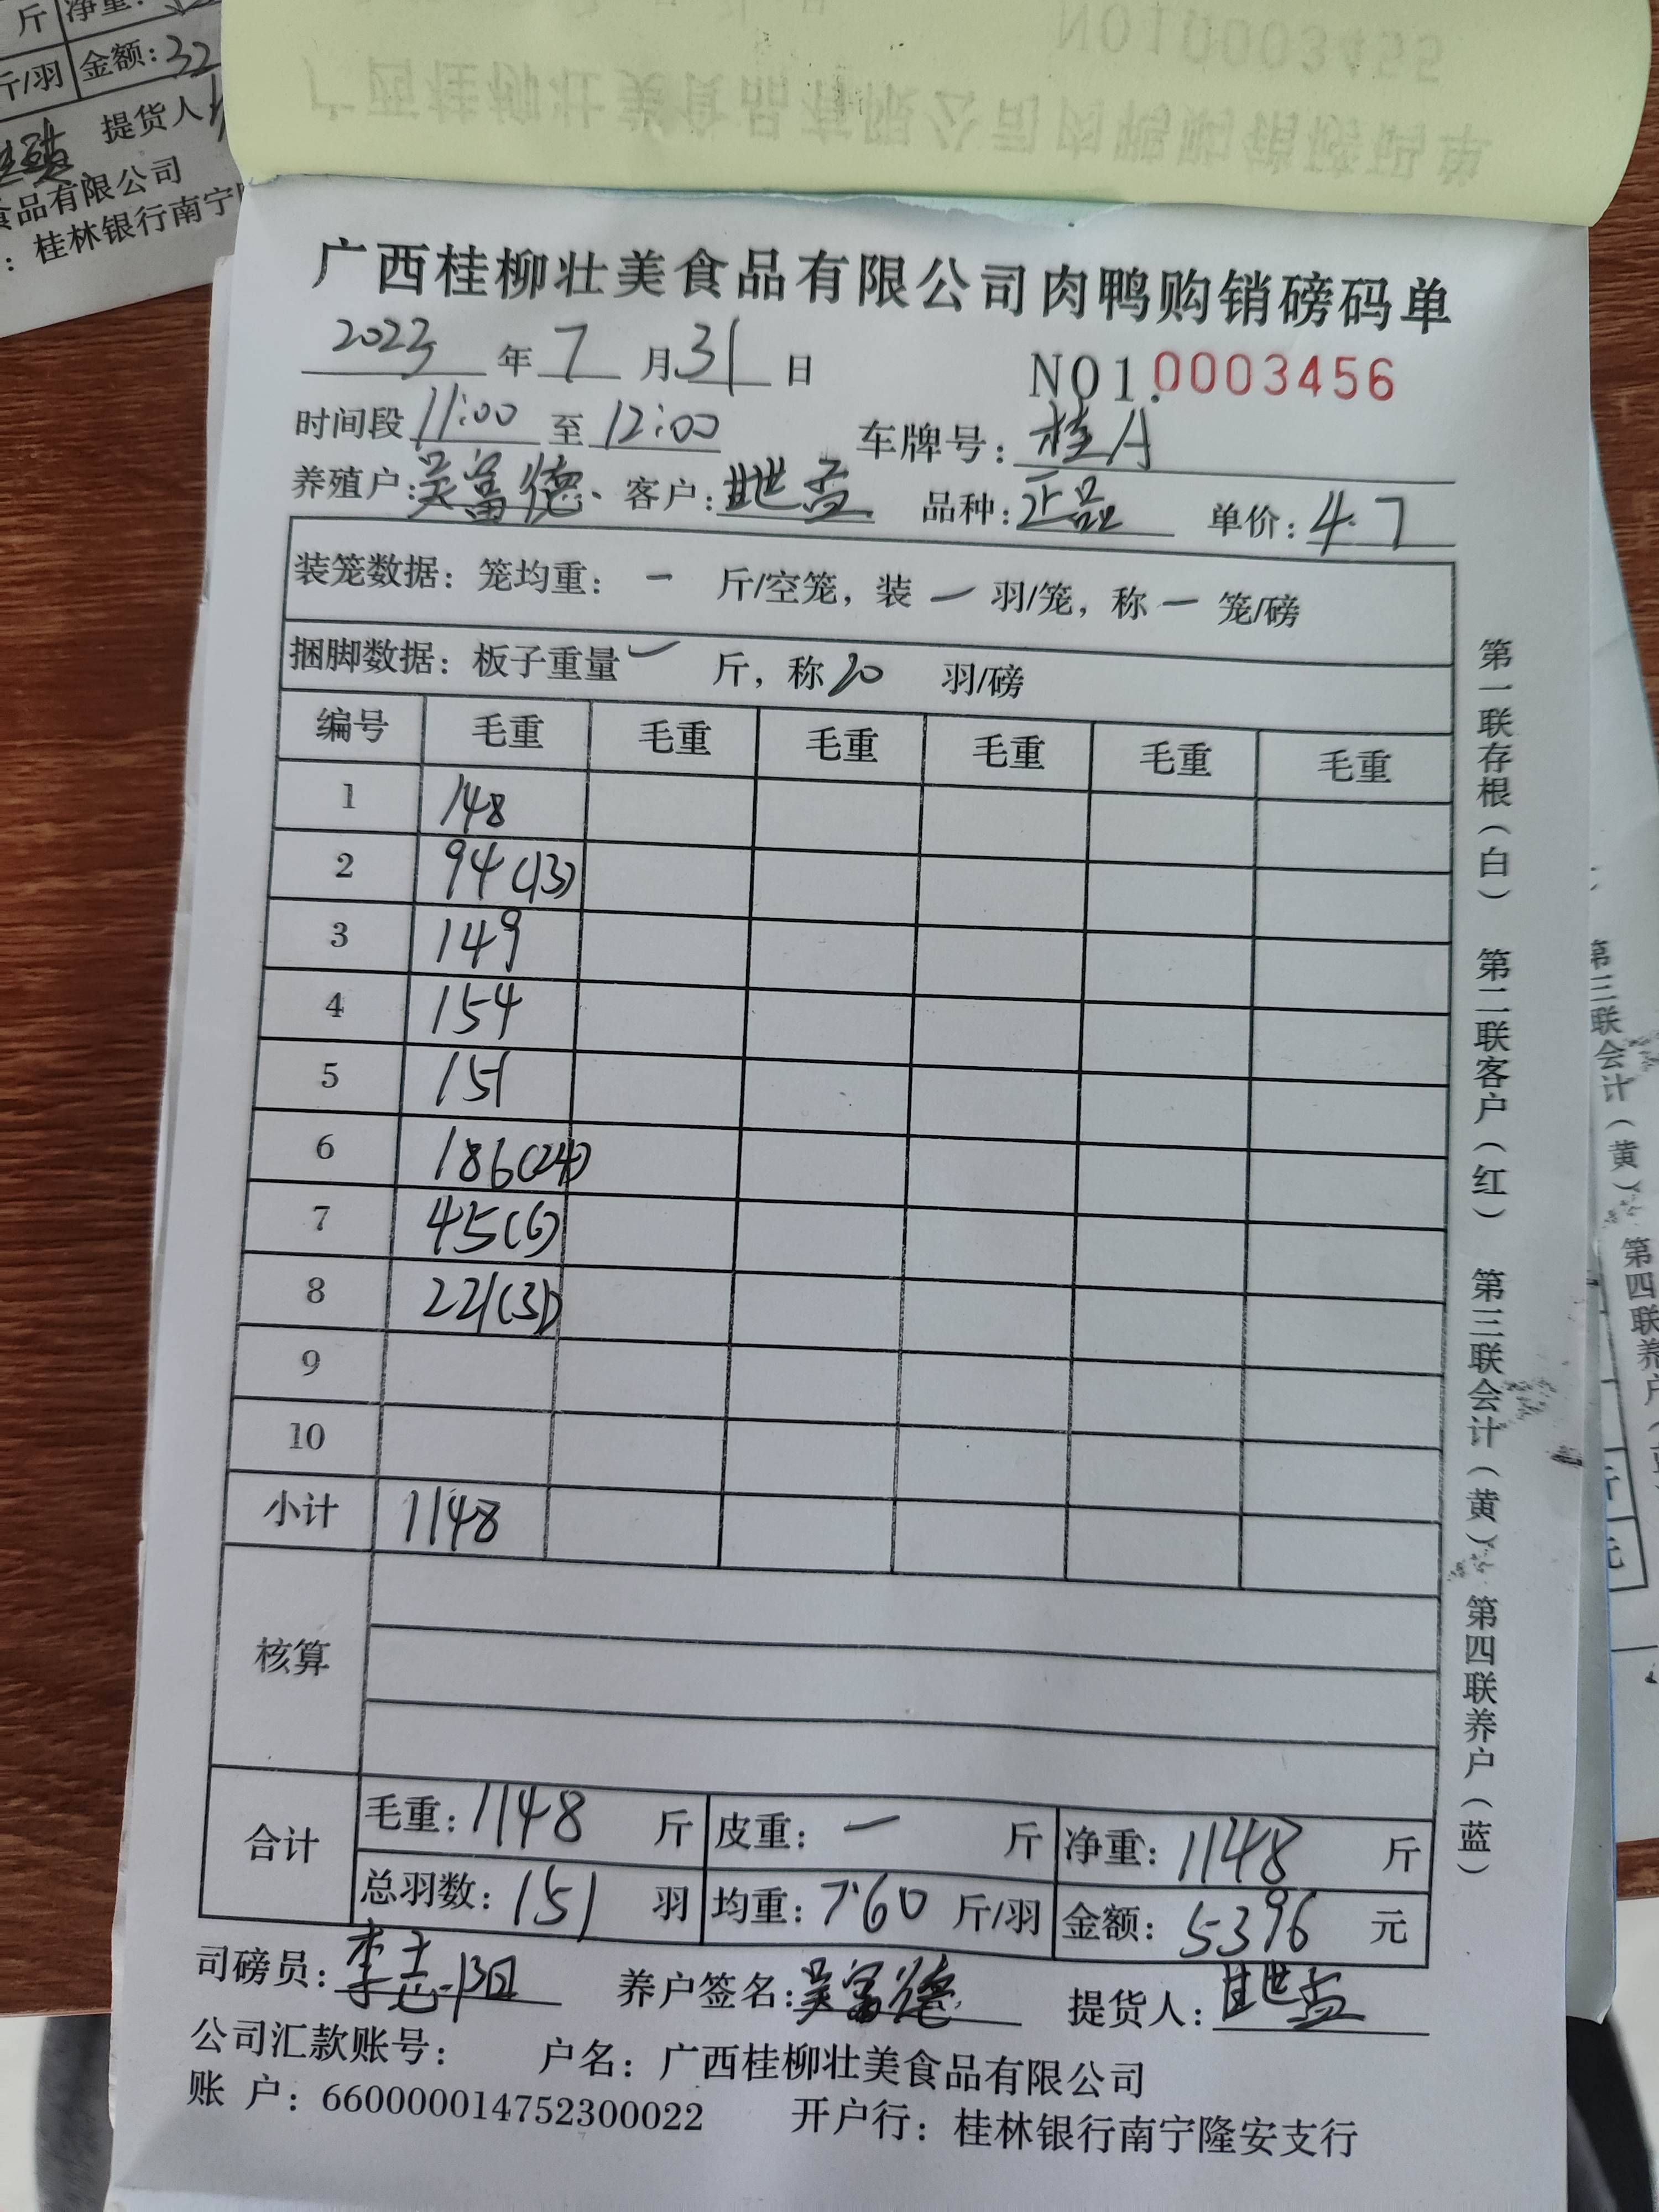 斤 净重:
斤/羽 金额:32
提货人
食品有限公司
:桂林银行南宁
NO10003455
广西桂柳壮美食品有限公司肉鸭购销磅码单
广西桂柳壮美食品有限公司肉鸭购销磅码单
2023年7月31日 NO1.0003456
时间段11:00至12:00 车牌号:桂A
养殖户:吴富德 客户: 品种:正品 单价:4.7
装笼数据:笼均重:一 斤/空笼,装一羽/笼,称一笼/磅
捆脚数据:板子重量一 斤,称20 羽/磅
编号 毛重 毛重 毛重 毛重 毛重 毛重
1 148
2 94(13)
3 149
4 154
5 151
6 186(24)
7 45(6)
8 221(31)
9
10
小计 1148
核算
合计 毛重:1148 斤 皮重:一 斤 净重:1148 斤
总羽数:151 羽 均重:7.60 斤/羽 金额:5396 元
司磅员:李志阳 养户签名:吴富德 提货人:
公司汇款账号: 户名:广西桂柳壮美食品有限公司
账 户:660000014752300022 开户行:桂林银行南宁隆安支行
第一联存根(白) 第二联客户(红) 第三联会计(黄) 第四联养户(蓝)
第三联会计(黄) 第四联养户
斤
元